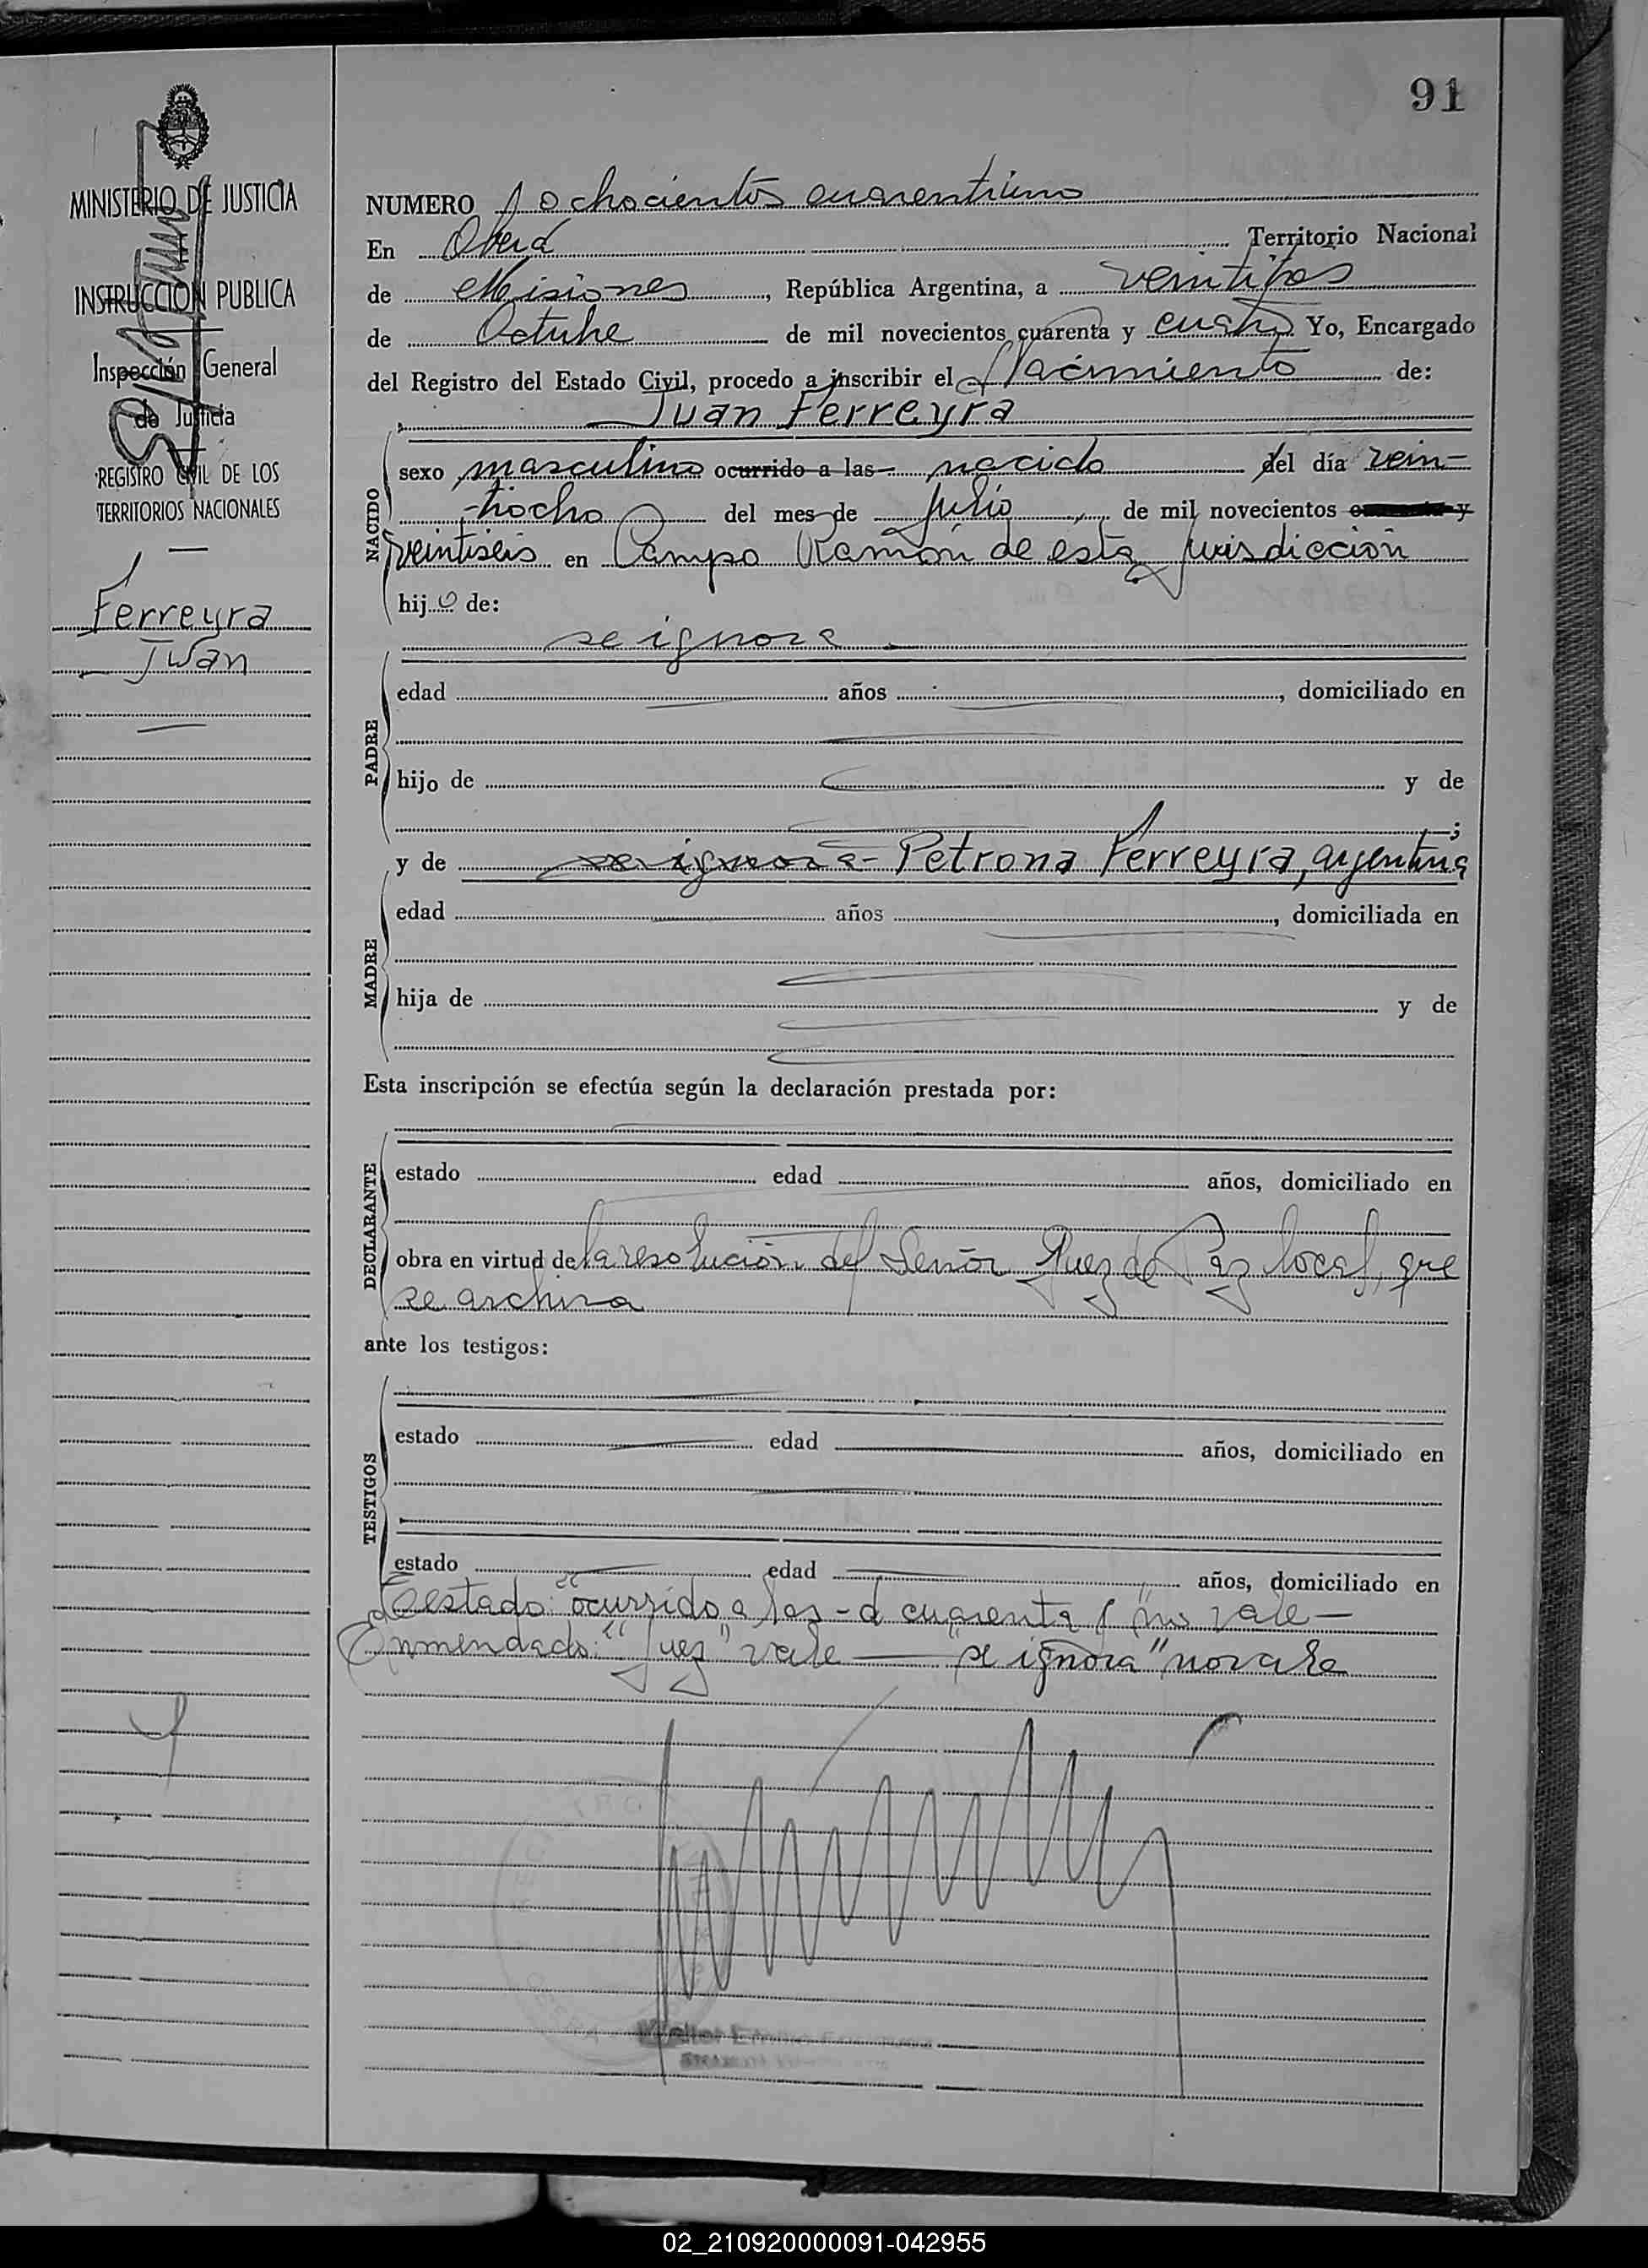 91
MINISTERIO DE JUSTICIA
E
INSTRUCCION PUBLICA
Inspección General
de Justicia
REGISTRO CIVIL DE LOS
TERRITORIOS NACIONALES
Ferreyra
Juan
NUMERO ochocientos cuarentiuno
En Oberá Territorio Nacional
de Misiones, República Argentina, a
de Octubre de mil novecientos cuarenta y cuatro Yo, Encargado
del Registro del Estado Civil, procedo a inscribir el Nacimiento de:
Juan Ferreyra
NACIDO
sexo masculino ocurrido a las nacido del día vein-
tiocho del mes de Julio de mil novecientos cuarenta y
veintiseis en Campo Ramón de esta jurisdicción
hijo de:
se ignora
PADRE
edad años, domiciliado en
hijo de y de
;
y de se ignora - Petrona Ferreyra, argentina
MADRE
edad años, domiciliada en
hija de y de
Esta inscripción se efectúa según la declaración prestada por:
DECLARANTE
estado edad años, domiciliado en
obra en virtud de la resolución del Señor Juez de Paz local, que
se archiva
ante los testigos:
TESTIGOS
estado edad años, domiciliado en
estado edad años, domiciliado en
Testado "ocurrido a las - cuarenta "no vale -
Enmendado: "Juez" vale — "se ignora" no vale
02_210920000091-042955